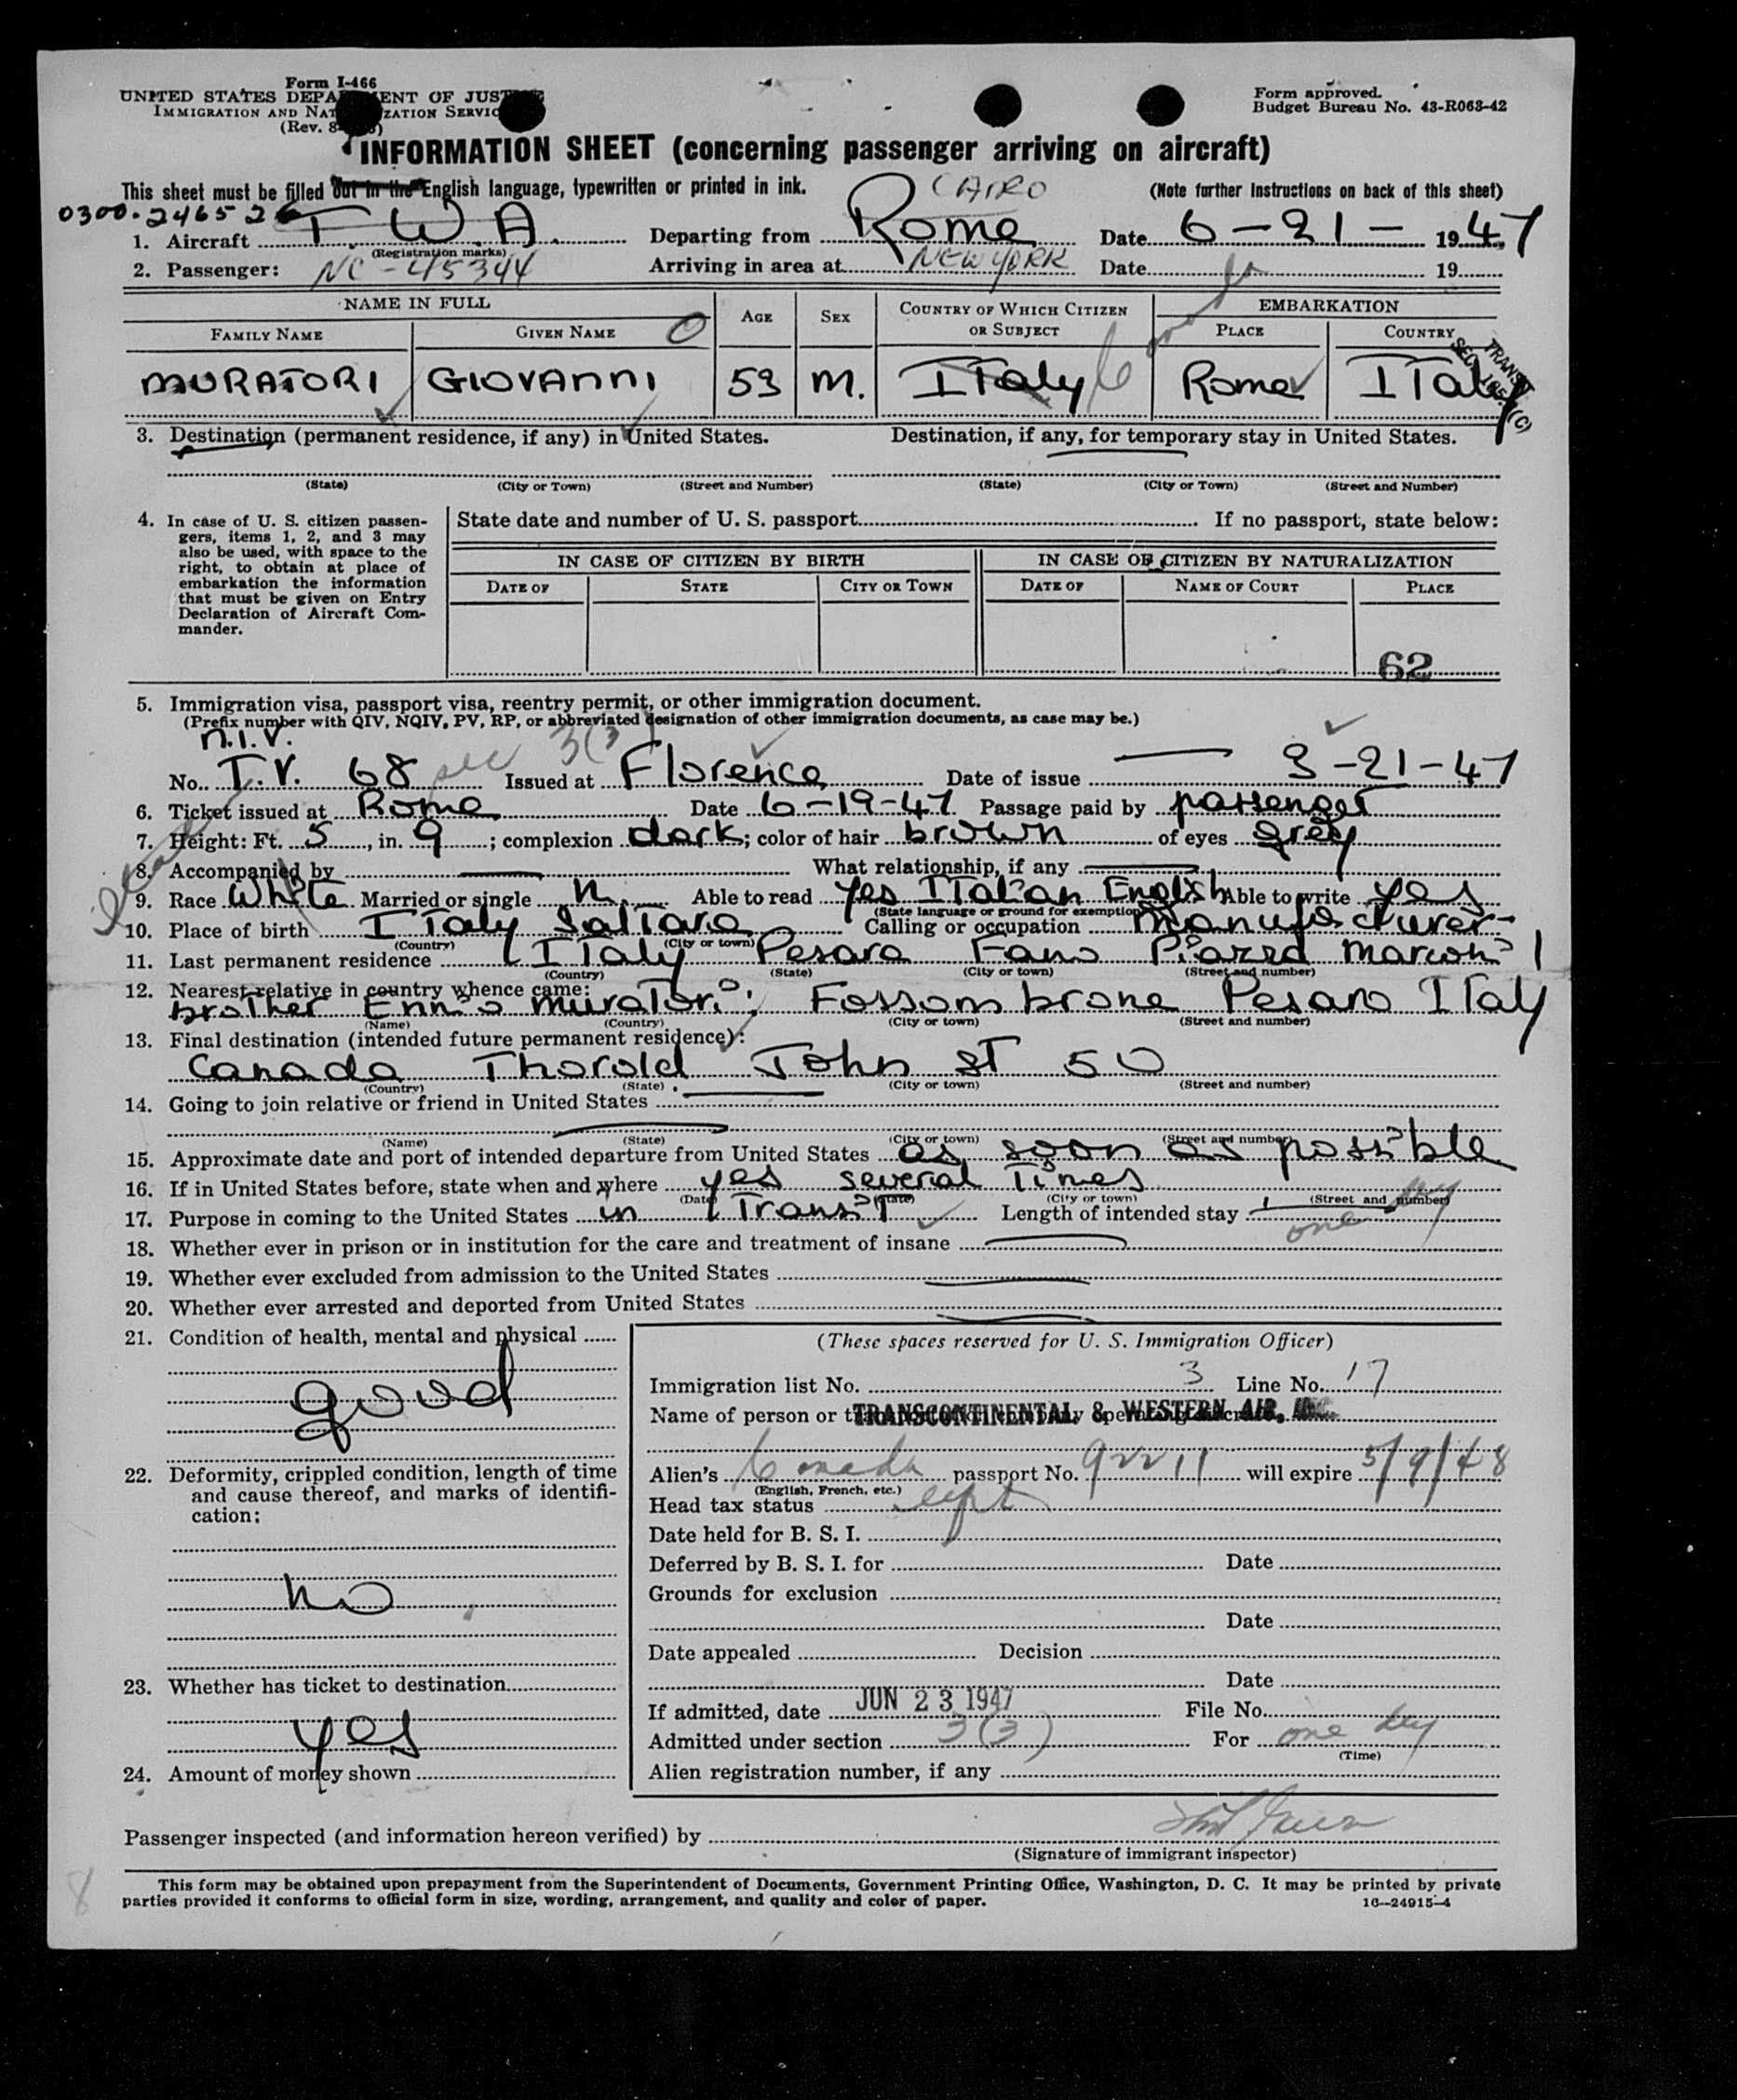 Form I-466
UNITED STATES DEPA ENT OF JUS
IMMIGRATION AND NAT ZATION SERVIC
(Rev. 8
Form approved.
Budget Bureau No. 43-R063-42
INFORMATION SHEET (concerning passenger arriving on aircraft)
This sheet must be filled out in the English language, typewritten or printed in ink.
(Note further instructions on back of this sheet)
CAIRO
0300-24652
1. Aircraft T.W.A. Departing from Rome Date 6-21- 1947
(Registration marks)
2. Passenger: NC-45344 Arriving in area at NEW YORK Date 19
NAME IN FULL AGE SEX COUNTRY OF WHICH CITIZEN OR SUBJECT EMBARKATION
FAMILY NAME GIVEN NAME PLACE COUNTRY
TRANSIT
MURATORI GIOVANNI 53 M. ITaly Canada Rome ITaly
3. Destination (permanent residence, if any) in United States. Destination, if any, for temporary stay in United States.
(State) (City or Town) (Street and Number) (State) (City or Town) (Street and Number)
4. In case of U. S. citizen passen-
gers, items 1, 2, and 3 may
also be used, with space to the
right, to obtain at place of
embarkation the information
that must be given on Entry
Declaration of Aircraft Com-
mander.
State date and number of U. S. passport If no passport, state below:
IN CASE OF CITIZEN BY BIRTH IN CASE OF CITIZEN BY NATURALIZATION
DATE OF STATE CITY OR TOWN DATE OF NAME OF COURT PLACE
62
5. Immigration visa, passport visa, reentry permit, or other immigration document.
(Prefix number with QIV, NQIV, PV, RP, or abbreviated designation of other immigration documents, as case may be.)
N.I.V.
No. T.V. 68 sec 3(3) Issued at Florence Date of issue 3-21-47
6. Ticket issued at Rome Date 6-19-47 Passage paid by passenger
7. Height: Ft. 5, in. 9; complexion dark; color of hair brown of eyes grey
8. Accompanied by What relationship, if any
9. Race White Married or single M. Able to read yes ITalian English Able to write yes
(State language or ground for exemption)
10. Place of birth ITaly Saltara Calling or occupation manufacturer
(Country) (City or town)
11. Last permanent residence ITaly Pesaro Fano Piazza Marconi 1
(Country) (State) (City or town) (Street and number)
12. Nearest relative in country whence came:
brother Ennio Muratori; Fossombrone Pesaro ITaly
(Name) (Country) (City or town) (Street and number)
13. Final destination (intended future permanent residence):
Canada Thorold John ST 50
(Country) (State) (City or town) (Street and number)
14. Going to join relative or friend in United States
(Name) (State) (City or town) (Street and number)
15. Approximate date and port of intended departure from United States as soon as possible
16. If in United States before, state when and where yes several Times
(Date) (State) (City or town) (Street and number)
17. Purpose in coming to the United States in Transit Length of intended stay one day
18. Whether ever in prison or in institution for the care and treatment of insane
19. Whether ever excluded from admission to the United States
20. Whether ever arrested and deported from United States
21. Condition of health, mental and physical
good
22. Deformity, crippled condition, length of time
and cause thereof, and marks of identifi-
cation:
no
23. Whether has ticket to destination
yes
24. Amount of money shown
(These spaces reserved for U. S. Immigration Officer)
Immigration list No. 3 Line No. 17
Name of person or TRANSCONTINENTAL & WESTERN AIR, INC.
Alien's Canada passport No. 92211 will expire 5/9/48
(English, French, etc.)
Head tax status
Date held for B. S. I.
Deferred by B. S. I. for Date
Grounds for exclusion
Date
Date appealed Decision
Date
If admitted, date JUN 23 1947 File No.
Admitted under section 3(3) For one day
(Time)
Alien registration number, if any
Passenger inspected (and information hereon verified) by
(Signature of immigrant inspector)
8
This form may be obtained upon prepayment from the Superintendent of Documents, Government Printing Office, Washington, D. C. It may be printed by private
parties provided it conforms to official form in size, wording, arrangement, and quality and color of paper.
16—24915-4